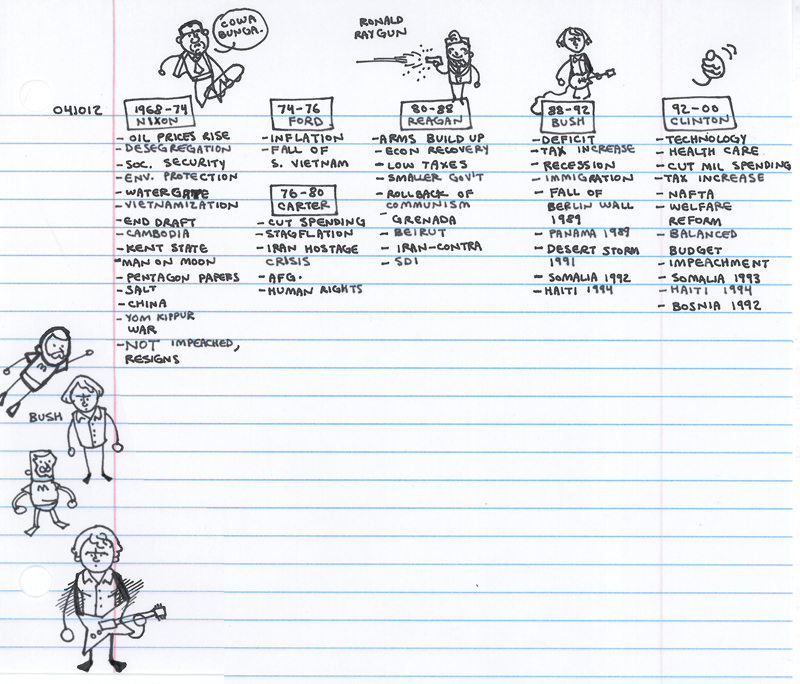 COWA
BUNGA.
RONALD
RAYGUN
041012
1968-74
NIXON
- OIL PRICES RISE
- DESEGREGATION
- SOC. SECURITY
- ENV. PROTECTION
- WATERGATE
- VIETNAMIZATION
- END DRAFT
- CAMBODIA
- KENT STATE
- MAN ON MOON
- PENTAGON PAPERS
- SALT
- CHINA
- YOM KIPPUR
WAR
- NOT IMPEACHED,
RESIGNS
74-76
FORD
- INFLATION
- FALL OF
S. VIETNAM
76-80
CARTER
- CUT SPENDING
- STAGFLATION
- IRAN HOSTAGE
CRISIS
- AFG.
- HUMAN RIGHTS
80-88
REAGAN
- ARMS BUILD UP
- ECON RECOVERY
- LOW TAXES
- SMALLER GOV'T
- ROLLBACK OF
COMMUNISM
- GRENADA
- BEIRUT
- IRAN-CONTRA
- SDI
88-92
BUSH
- DEFICIT
- TAX INCREASE
- RECESSION
- IMMIGRATION
- FALL OF
BERLIN WALL
1989
- PANAMA 1989
- DESERT STORM
1991
- SOMALIA 1992
- HAITI 1994
92-00
CLINTON
- TECHNOLOGY
- HEALTH CARE
- CUT MIL SPENDING
- TAX INCREASE
- NAFTA
- WELFARE
REFORM
- BALANCED
BUDGET
- IMPEACHMENT
- SOMALIA 1993
- HAITI 1994
- BOSNIA 1992
3
BUSH
M